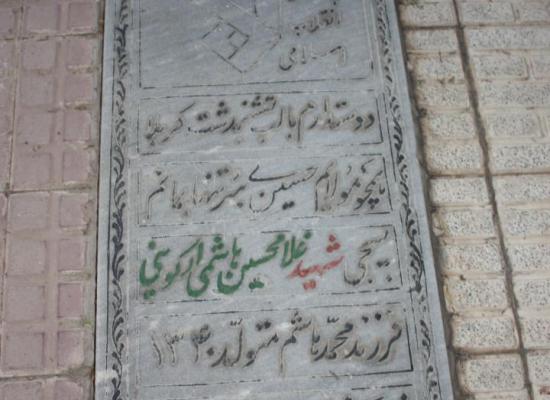 انقلاب
اسلامی
دوستدارم با لب تشنه بدشت کربلا
همچو مولایم حسین بی سر تنها بمانم
بسیجی شهید غلامحسین هاشمی ارکوینی
فرزند محمدهاشم متولد ۱۳۴۰